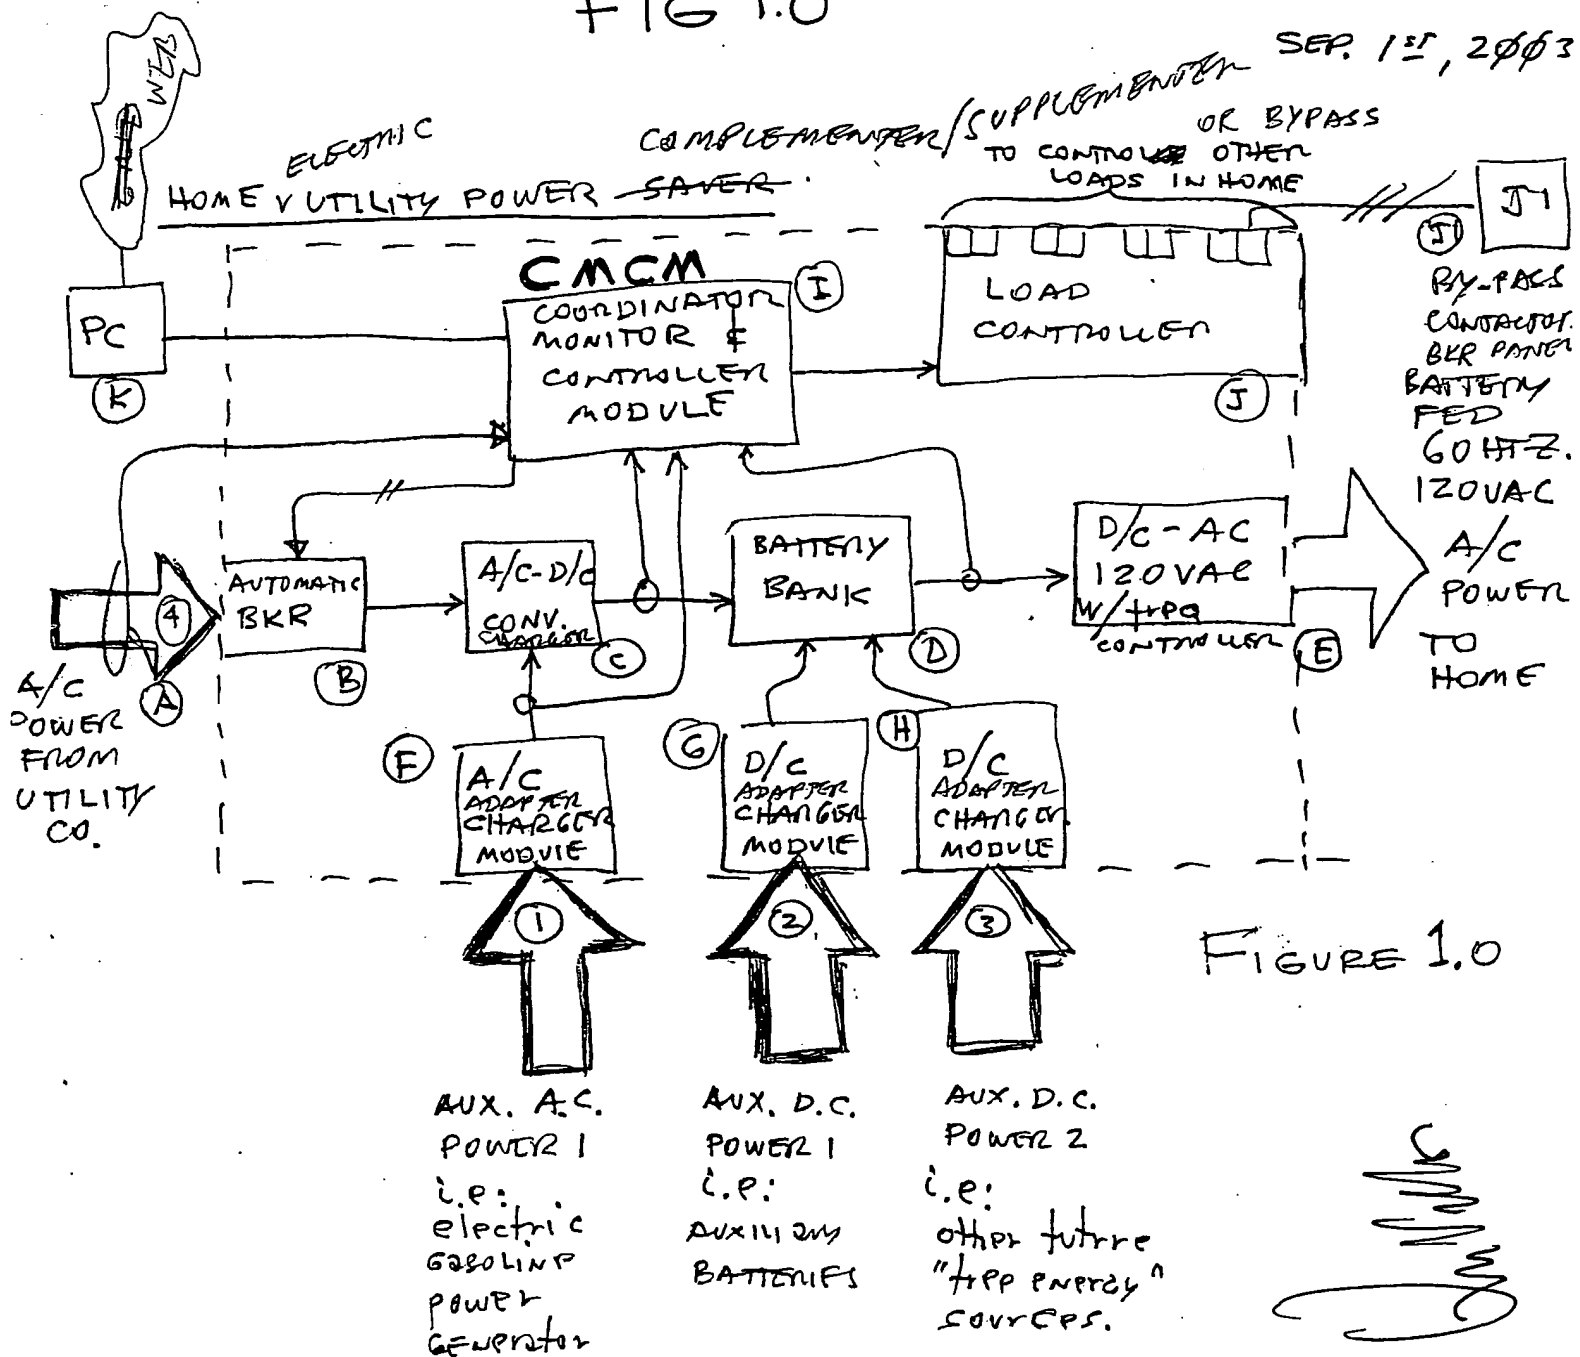 FIG 1.0
SEP. 1ST, 2003
ELECTRIC
HOME UTILITY POWER SAVER
COMPLEMENTER/SUPPLEMENTER
OR BYPASS
TO CONTROL OTHER
LOADS IN HOME
J1
J1
BY-PASS
CONTACTOR.
BKR PANEL
BATTERY
FED
60 HTZ.
120VAC
CMCM
COORDINATOR
MONITOR &
CONTROLLER
MODULE
I
LOAD
CONTROLLER
J
PC
K
4
A
A/C
POWER
FROM
UTILITY
CO.
AUTOMATIC
BKR
B
A/C-D/C
CONV.
CHARGER
C
BATTERY
BANK
D
D/C-AC
120VAC
W/freq
CONTROLLER
E
A/C
POWER
TO
HOME
F
A/C
ADAPTER
CHARGER
MODULE
G
D/C
ADAPTER
CHARGER
MODULE
H
D/C
ADAPTER
CHARGER
MODULE
1
2
3
FIGURE 1.0
AUX. A.C.
POWER 1
i.e:
electric
GASOLINE
power
GENerator
AUX. D.C.
POWER 1
i.e:
AUXILIARY
BATTERIES
AUX. D.C.
POWER 2
i.e:
other future
"free energy"
sources.